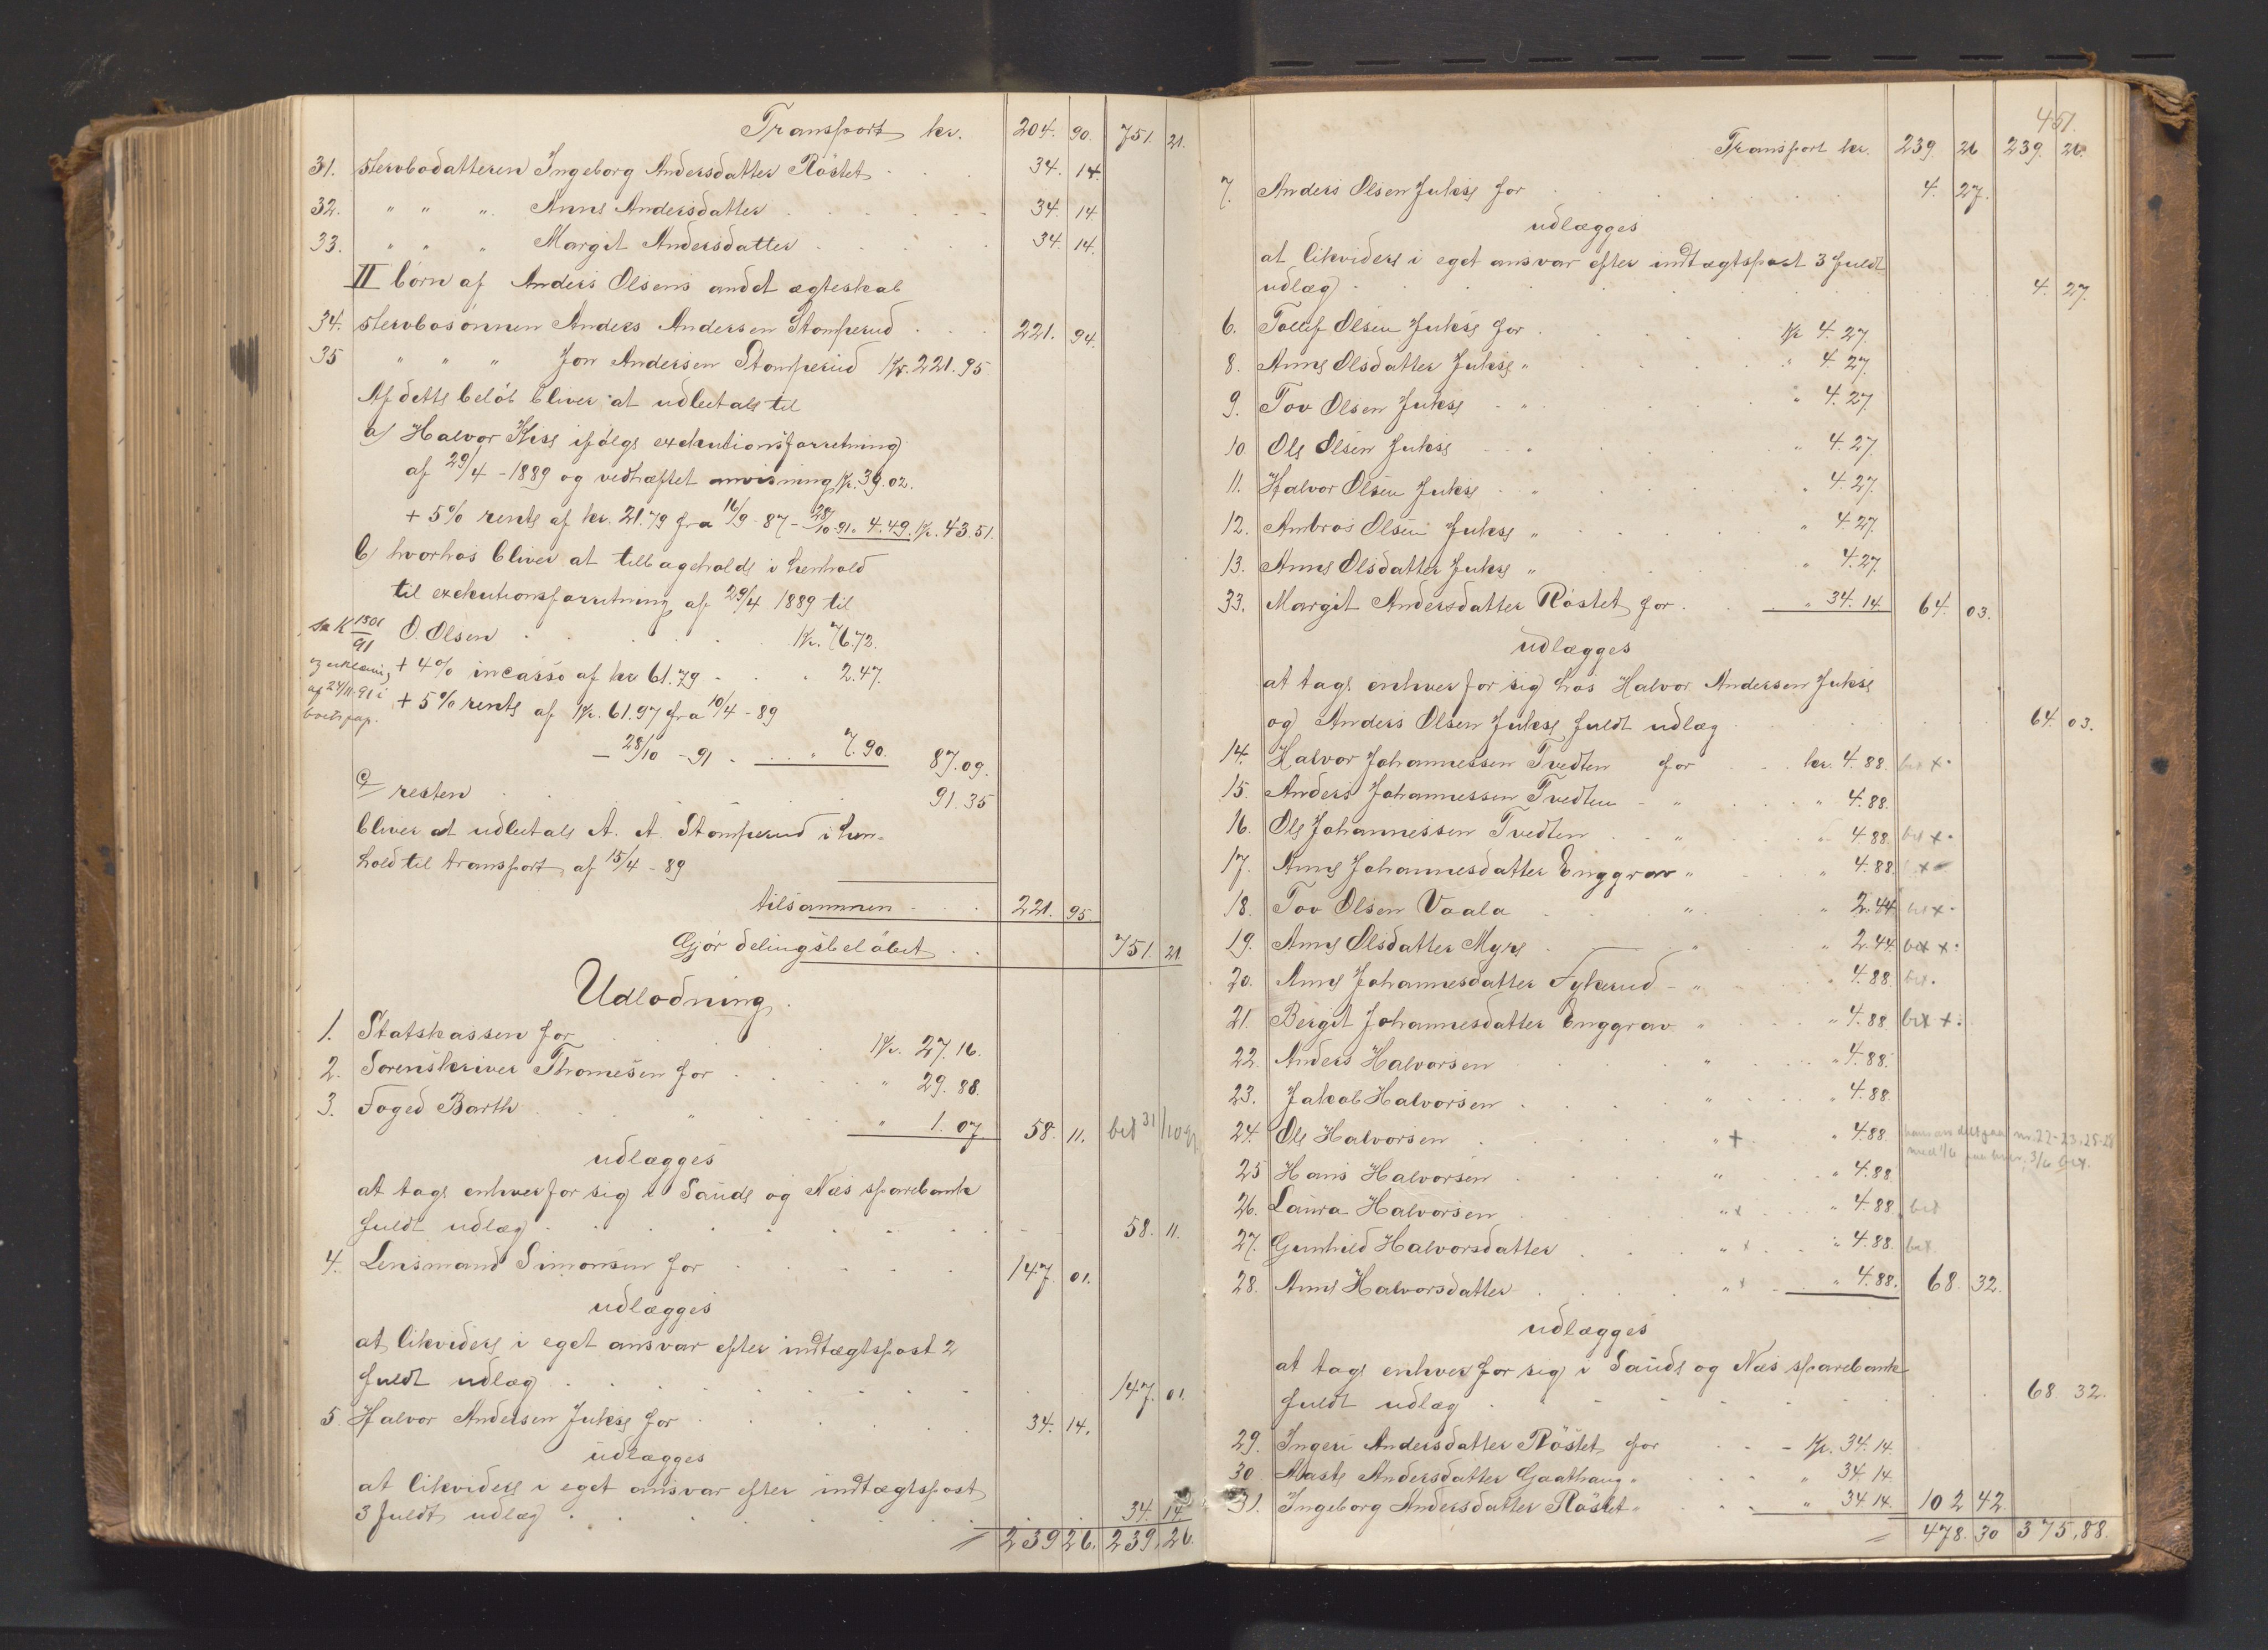 Transport kr. 204. 90. 751. 21.
31. stervbodatteren Ingeborg Andersdatter Röstet 34. 14.
32. " " " Anne Andersdatter 34. 14.
33. " " " Margit Andersdatter 34. 14.
II börn af Anders Olsens andet ægteskab
34. stervbosönnen Anders Andersen Stomperud 221. 94.
35 " " " Jon Andersen Stomperud Kr. 221. 95
Af dette belöb bliver at udbetale til
a) Halvor Kise ifölge exekutionsforretning
af 29/4 - 1889 og vedhæftet anvisning Kr. 39.02.
+ 5% rente af kr. 21.79 fra 16/9 - 87 - 28/10 91. 4.49. Kr. 43.51.
b) hvorhos bliver at tilbageholde i henhold
til exekutionsforretning af 29/4 1889 til
O. Olsen Kr. 76.72.
+ 4% incasso af kr 61.79 " 2.47.
+ 5% rente af Kr. 61.97 fra 10/4 - 89
- 28/10 - 91 " 7.90. 87.09.
c/ resten 91.35
bliver at udbetale A. A. Stomperud i hen-
hold til transport af 15/4 - 89
tilsammen 221. 95
Gjör delingsbelöbet 751. 21
Udlodning.
1. Statskassen for Kr. 27.16.
2. Sorenskriver Thomesen for " 29.88.
3. Foged Barth " " 1.07 58. 11. bet 31/10 91
udlægges
at tage enhver for sig i Saude og Næs sparebank
fuldt udlæg 58. 11.
4. Lensmand Simonsen for 147. 01.
udlægges
at likvidere i eget ansvar efter indtægtspost 2
fuldt udlæg 147. 01.
5. Halvor Andersen Jukse for 34. 14.
udlægges
at likvidere i eget ansvar efter indtægtspost
3 fuldt udlæg 34. 14
239 26. 239. 26.
451.
Transport kr. 239. 26 239. 26.
7. Anders Olsen Jukse for 4. 27.
udlægges
at likvidere i eget ansvar efter indtægtspost 3 fuldt
udlæg 4. 27.
6. Tollef Olsen Jukse for Kr 4.27.
8. Anne Olsdatter Jukse " " 4.27.
9. Tov Olsen Jukse " " 4.27.
10 Ole Olsen Jukse " " 4.27.
11. Halvor Olsen Jukse " " 4.27.
12. Ambros Olsen Jukse " " 4.27.
13. Anne Olsdatter Jukse " " 4.27.
33. Margit Andersdatter Röstet for " 34.14 64. 03.
udlægges
at tage enhver for sig hos Halvor Andersen Jukse
og Anders Olsen Jukse fuldt udlæg 64. 03.
14. Halvor Johannessen Tvedten for kr. 4.88. bet x.
15. Anders Johannessen Tvedten " " 4.88.
16. Ole Johannessen Tvedten " " 4.88 bet x.
17. Anne Johannesdatter Enggrav " " 4.88. x
18. Tov Olsen Vaala " " 2.44 bet x.
19. Anne Olsdatter Myre " " 2.44 bet x.
20. Anne Johannesdatter Fykerud " " 4.88 bet.
21. Bergit Johannesdatter Enggrav " " 4.88 bet x.
22. Anders Halvorsen " " 4.88.
23. Jakob Halvorsen " " 4.88
24. Ole Halvorsen " + " 4.88.
25 Hans Halvorsen " " 4.88.
26. Laura Halvorsen " x " 4.88. bet
27. Gunhild Halvorsdatter " x " 4.88. bet
28. Anne Halvorsdatter " x " 4.88. 68. 32.
udlægges
at tage enhver for sig i Saude og Næs sparebank
fuldt udlæg 68. 32.
29. Ingeri Andersdatter Röstet for Kr. 34.14.
30. Aaste Andersdatter Gaathaug " " 34.14
31. Ingeborg Andersdatter Röstet " " 34.14. 102 42
478. 30 375,88.